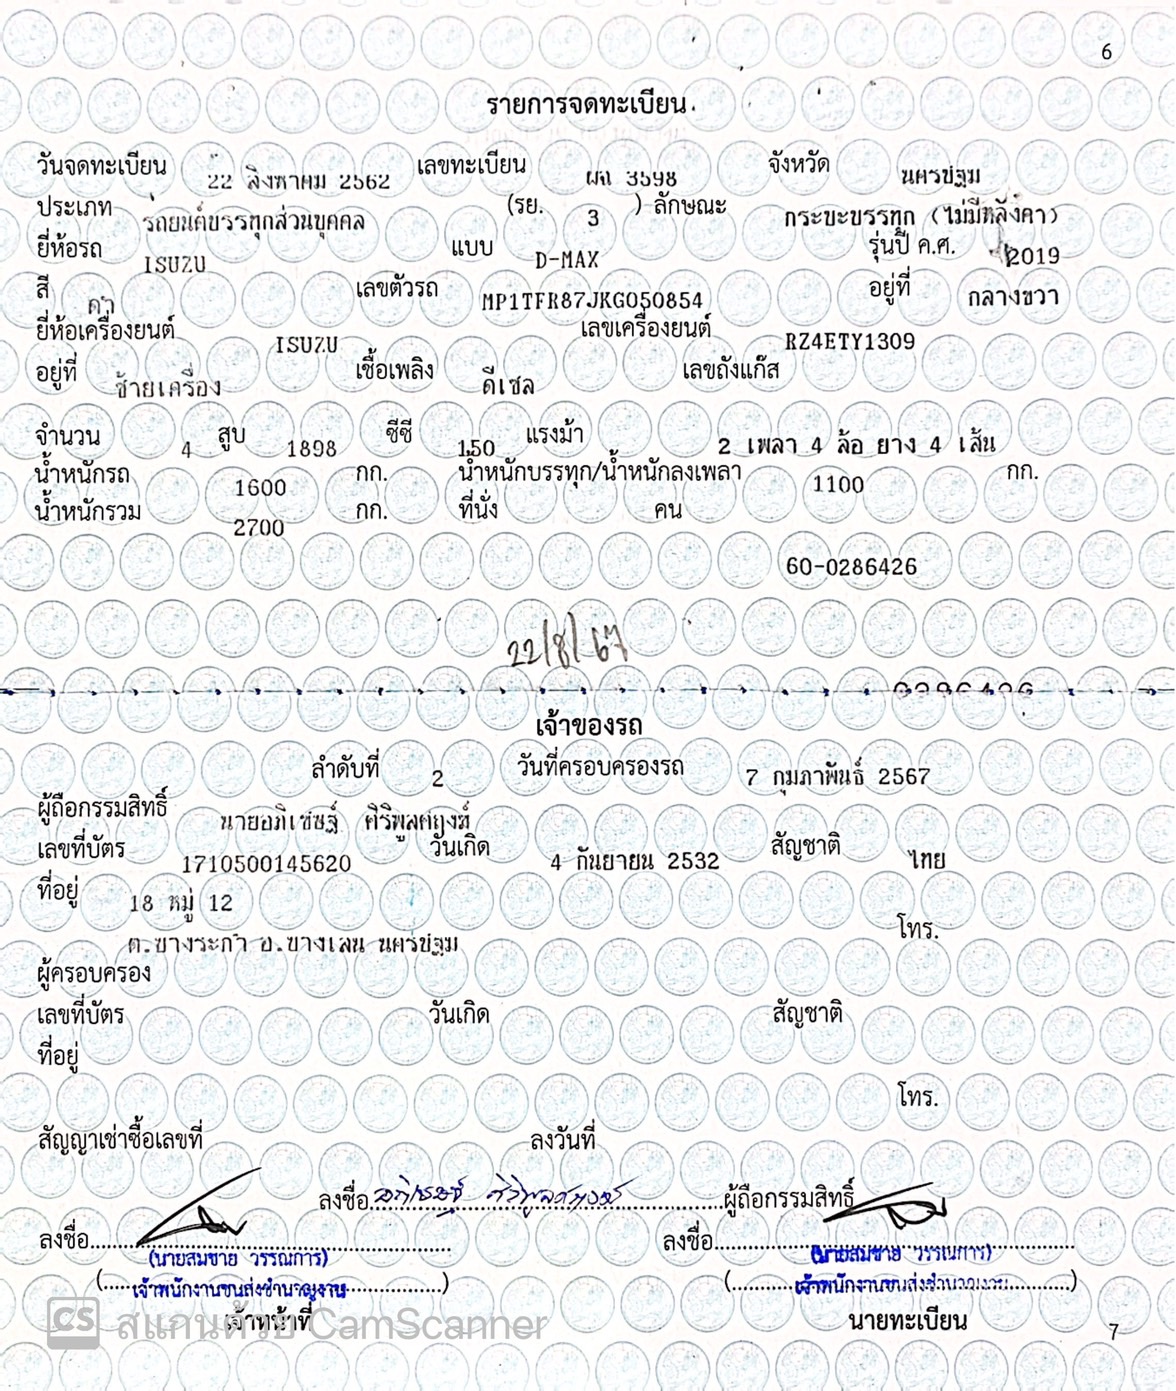 6
รายการจดทะเบียน
วันจดทะเบียน 22 สิงหาคม 2562 เลขทะเบียน ผฉ 3598 จังหวัด นครปฐม
ประเภท รถยนต์บรรทุกส่วนบุคคล (รย. 3 ) ลักษณะ กระบะบรรทุก (ไม่มีหลังคา)
ยี่ห้อรถ ISUZU แบบ D-MAX รุ่นปี ค.ศ. 2019
สี ดำ เลขตัวรถ MP1TFR87JKG050854 อยู่ที่ กลางขวา
ยี่ห้อเครื่องยนต์ ISUZU เลขเครื่องยนต์ RZ4ETY1309
อยู่ที่ ซ้ายเครื่อง เชื้อเพลิง ดีเซล เลขถังแก๊ส
จำนวน 4 สูบ 1898 ซีซี 150 แรงม้า 2 เพลา 4 ล้อ ยาง 4 เส้น
น้ำหนักรถ 1600 กก. น้ำหนักบรรทุก/น้ำหนักลงเพลา 1100 กก.
น้ำหนักรวม 2700 กก. ที่นั่ง คน
60-0286426
22/8/67
0286426
เจ้าของรถ
ลำดับที่ 2 วันที่ครอบครองรถ 7 กุมภาพันธ์ 2567
ผู้ถือกรรมสิทธิ์ นายอภิเชษฐ์
เลขที่บัตร 1710500145620 วันเกิด 4 กันยายน 2532 สัญชาติ ไทย
ที่อยู่ 18 หมู่ 12
โทร.
ต.บางระกำ อ.บางเลน นครปฐม
ผู้ครอบครอง
เลขที่บัตร วันเกิด สัญชาติ
ที่อยู่
โทร.
สัญญาเช่าซื้อเลขที่ ลงวันที่
ลงชื่อ อภิเชษฐ์ ผู้ถือกรรมสิทธิ์
ลงชื่อ ลงชื่อ
(นายสมชาย วรรณการ) (นายสมชาย วรรณการ)
(เจ้าพนักงานขนส่งชำนาญงาน) (เจ้าพนักงานขนส่งชำนาญงาน)
เจ้าหน้าที่ นายทะเบียน
CS สแกนด้วย CamScanner
7